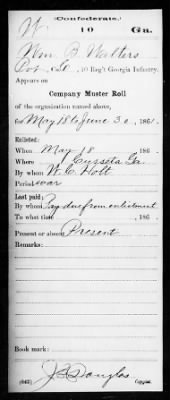 (Confederate.)
W 10 Ga.
Wm B. Walters
, Co. , 10 Reg't Georgia Infantry.
Appears on
Company Muster Roll
of the organization named above,
for May 18 to June 30, 1861.
Enlisted:
When May 18, 186 .
Where Cusseta Ga.
By whom W. C. Holt
Period war
Last paid:
By whom Pay due from enlistment
To what time , 186 .
Present or absent Present
Remarks:
Book mark:
(642) J. S. Douglas
Copyist.